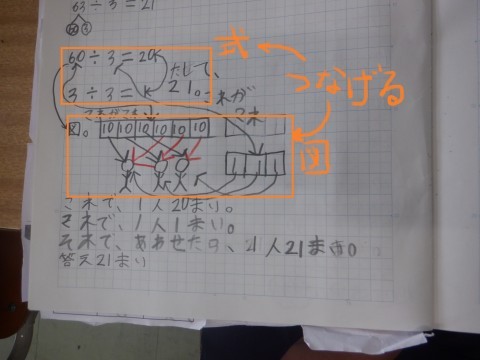 63÷3=21
60 3
60÷3=20
たして、
3÷3=
21。
これが
式
つなげる
図。 10 10 10 10 10 10
1 1 1
図
これで、1人20まい。
これで、1人1まい。
それで、あわせたら、1人21まい。
答え21まい